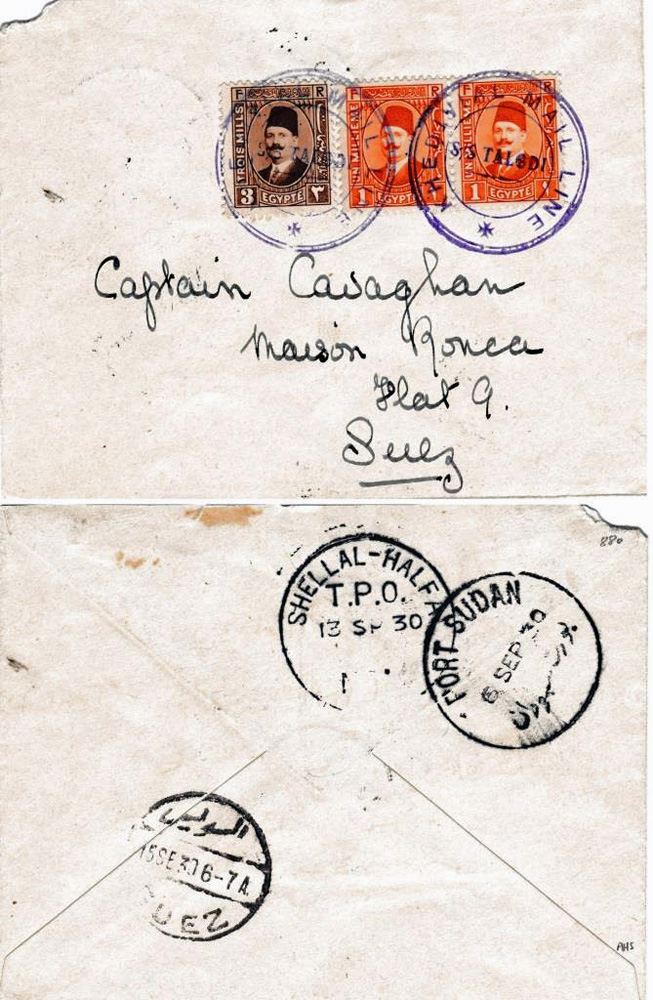 TROIS MILLS
F R
3 ٣
EGYPTE
UN MILLIEME
F R
1
EGYPTE
UN MILLIEME
F R
1 ١
EGYPTE
KHEDIVIAL MAIL LINE
S/S TALODI
KHEDIVIAL MAIL LINE
S/S TALODI
Captain Cavaghan
Maison Ronca
Flat 9.
Suez
880
SHELLAL-HALFA
T.P.O.
13 SP 30
PORT SUDAN
6 SEP 30
السويس
15 SE 30 6-7 A.
SUEZ
AHS